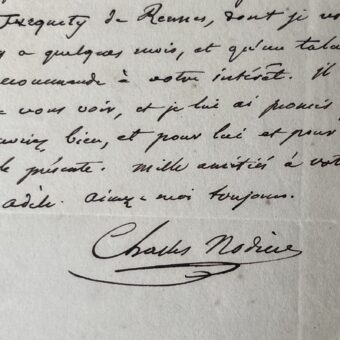 Turquety de Rennes, dont je vo
y a quelques mois, et qu'un tale
recommande à votre intérêt. il
vous voir, et je lui ai promis
bien, et pour lui et pour
présente. mille amitiés à vot
adèle. aimez-moi toujours.
Charles Nodier